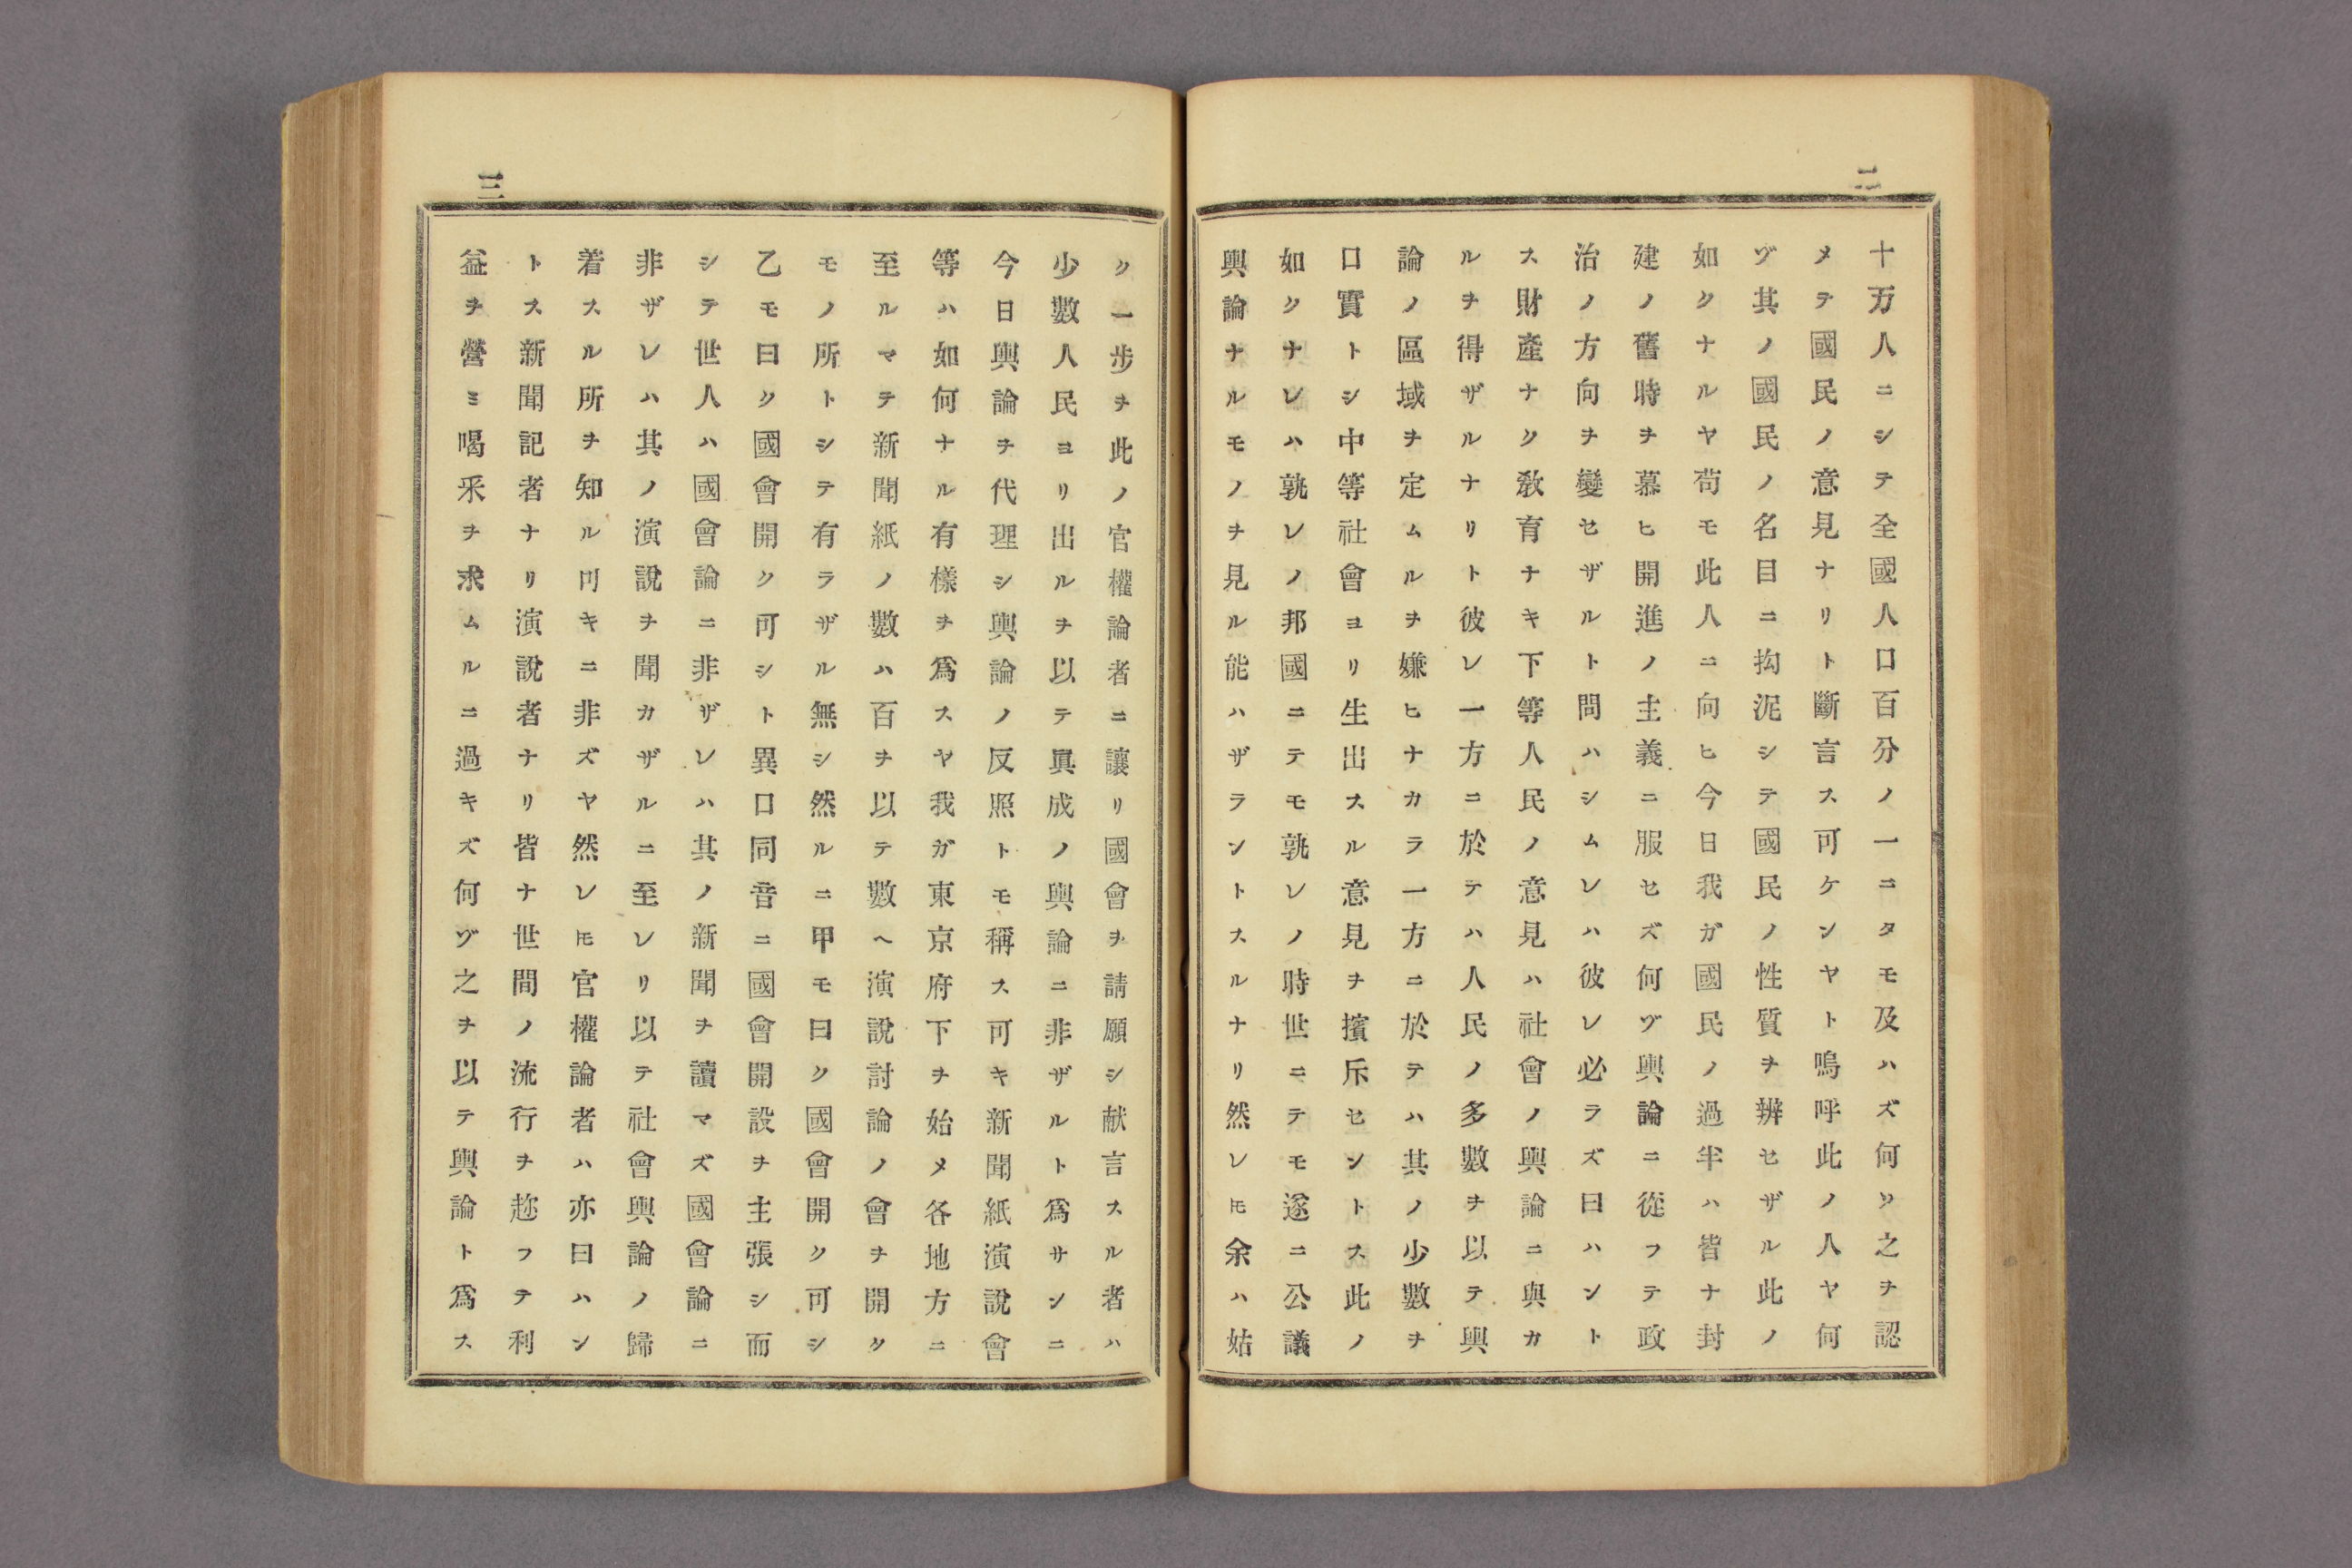 二
十万人ニシテ全國人口百分ノ一ニタモ及ハズ何ソ之ヲ認
メテ國民ノ意見ナリト斷言ス可ケンヤト嗚呼此ノ人ヤ何
ヅ其ノ國民ノ名目ニ拘泥シテ國民ノ性質ヲ辨セザル此ノ
如クナルヤ苟モ此人ニ向ヒ今日我ガ國民ノ過半ハ皆ナ封
建ノ舊時ヲ慕ヒ開進ノ主義ニ服セズ何ヅ輿論ニ從フテ政
治ノ方向ヲ變セザルト問ハシムレハ彼レ必ラズ曰ハント
ス財產ナク敎育ナキ下等人民ノ意見ハ社會ノ輿論ニ與カ
ルヲ得ザルナリト彼レ一方ニ於テハ人民ノ多數ヲ以テ輿
論ノ區域ヲ定ムルヲ嫌ヒナカラ一方ニ於テハ其ノ少數ヲ
口實トシ中等社會ヨリ生出スル意見ヲ擯斥セントス此ノ
如クナレハ孰レノ邦國ニテモ孰レノ時世ニテモ遂ニ公議
輿論ナルモノヲ見ル能ハザラントスルナリ然レ𪜈余ハ姑
三
ク一步ヲ此ノ官權論者ニ讓リ國會ヲ請願シ献言スル者ハ
少數人民ヨリ出ルヲ以テ眞成ノ輿論ニ非ザルト爲サンニ
今日輿論ヲ代理シ輿論ノ反照トモ稱ス可キ新聞紙演說會
等ハ如何ナル有樣ヲ爲スヤ我ガ東京府下ヲ始メ各地方ニ
至ルマテ新聞紙ノ數ハ百ヲ以テ數ヘ演說討論ノ會ヲ開ク
モノ所トシテ有ラザル無シ然ルニ甲モ曰ク國會開ク可シ
乙モ曰ク國會開ク可シト異口同音ニ國會開設ヲ主張シ而
シテ世人ハ國會論ニ非ザレハ其ノ新聞ヲ讀マズ國會論ニ
非ザレハ其ノ演說ヲ聞カザルニ至レリ以テ社會輿論ノ歸
着スル所ヲ知ル可キニ非ズヤ然レ𪜈官權論者ハ亦曰ハン
トス新聞記者ナリ演說者ナリ皆ナ世間ノ流行ヲ趂フテ利
益ヲ營ミ喝采ヲ求ムルニ過キズ何ヅ之ヲ以テ輿論ト爲ス